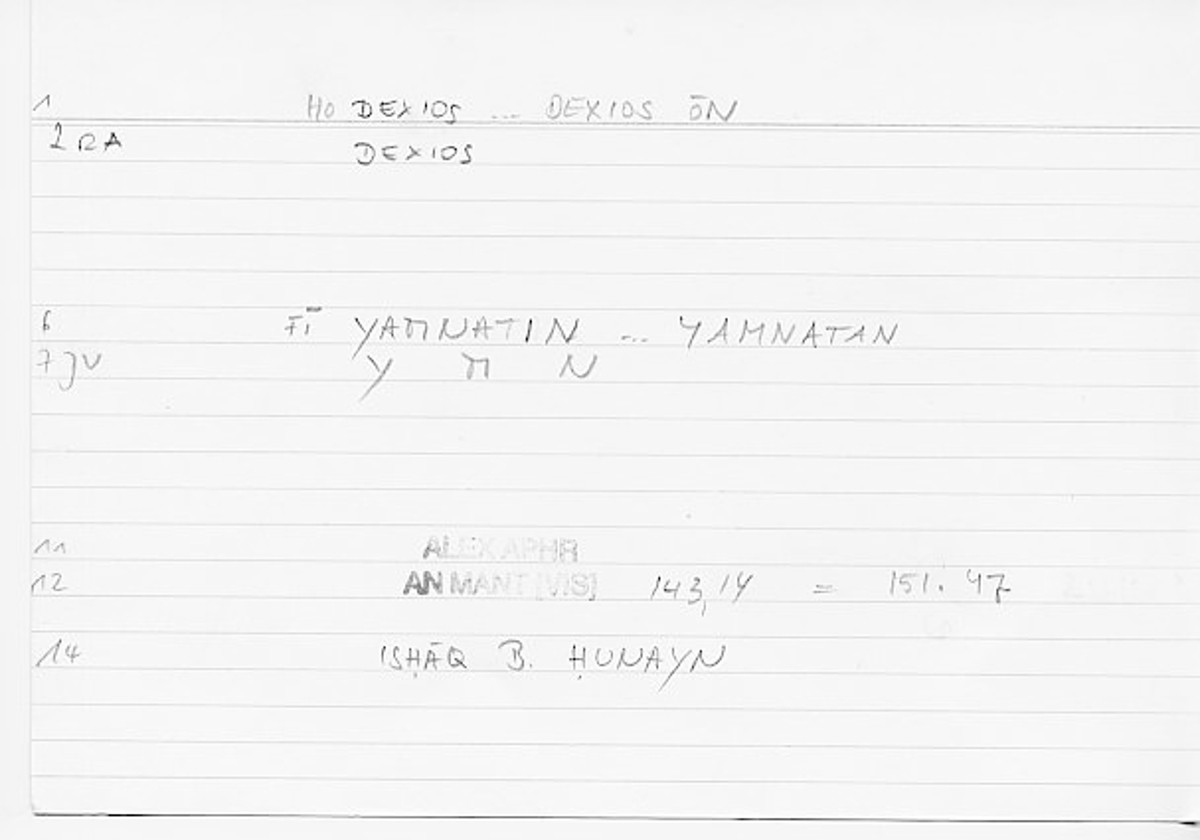 1 HO DEXIOS ... DEXIOS ŌN
2 RA DEXIOS
6 FĪ YAMNATIN ... YAMNATAN
7 JV Y M N
11 ALEX APHR
12 AN MANT [VIS] 143,14 = 151. 47
14 ISḤĀQ B. ḤUNAYN